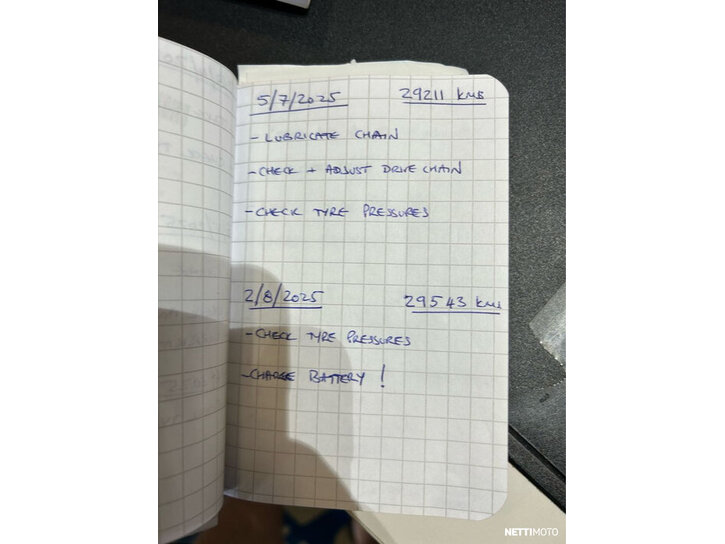 5/7/2025 29211 kms
- LUBRICATE CHAIN
- CHECK + ADJUST DRIVE CHAIN
- CHECK TYRE PRESSURES
2/8/2025 29543 kms
- CHECK TYRE PRESSURES
- CHARGE BATTERY !
NETTIMOTO